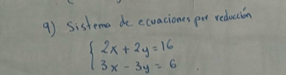 9) Sistema de ecuaciones por reducción
2x + 2y = 16
3x - 3y = 6